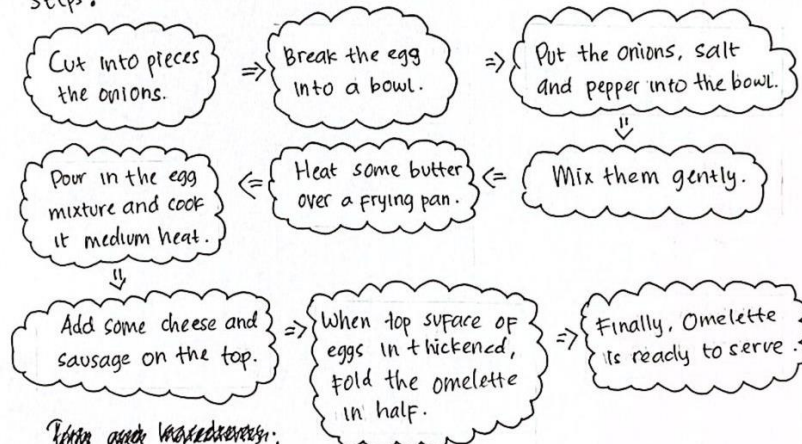 Steps:
Cut into pieces
the onions.
Break the egg
into a bowl.
Put the onions, salt
and pepper into the bowl.
Mix them gently.
Heat some butter
over a frying pan.
Pour in the egg
mixture and cook
it medium heat.
Add some cheese and
sausage on the top.
When top suface of
eggs in thickened,
fold the omelette
in half.
Finally, Omelette
is ready to serve.